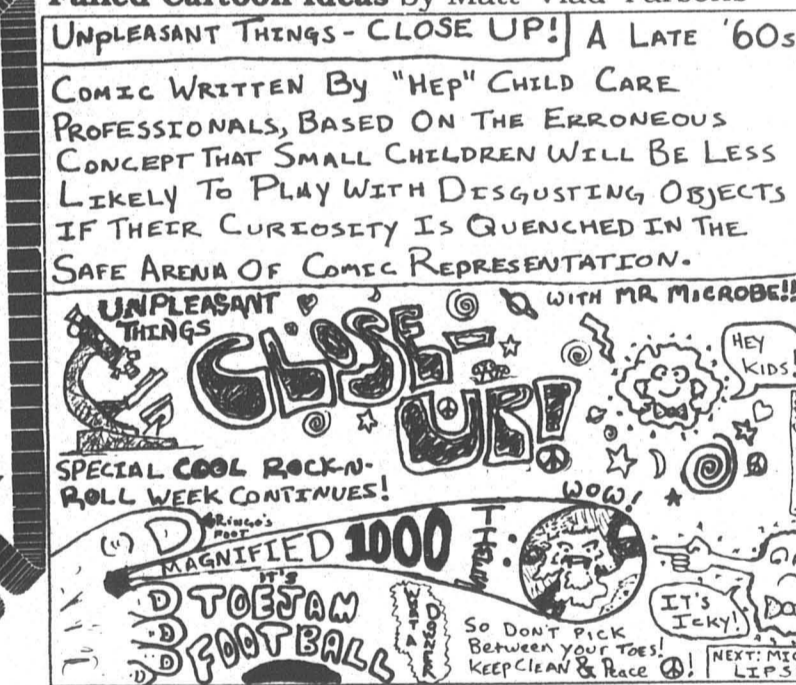 Failed Cartoon Ideas by Matt "Vlad" Parsons
UNPLEASANT THINGS - CLOSE UP! A LATE '60s
COMIC WRITTEN BY "HEP" CHILD CARE
PROFESSIONALS, BASED ON THE ERRONEOUS
CONCEPT THAT SMALL CHILDREN WILL BE LESS
LIKELY TO PLAY WITH DISGUSTING OBJECTS
IF THEIR CURIOSITY IS QUENCHED IN THE
SAFE ARENA OF COMIC REPRESENTATION.
UNPLEASANT
THINGS
CLOSE-
UP!
WITH MR MICROBE!!
HEY
KIDS!
SPECIAL COOL ROCK-N-
ROLL WEEK CONTINUES!
RINGO'S
FOOT
MAGNIFIED 1000
WOW!
IT'S
TOEJAM
FOOTBALL
WOTTA
DOWNER
SO DON'T PICK
Between YOUR TOES!
KEEP CLEAN & Peace !
IT'S
ICKY!
NEXT: MIC
LIPS